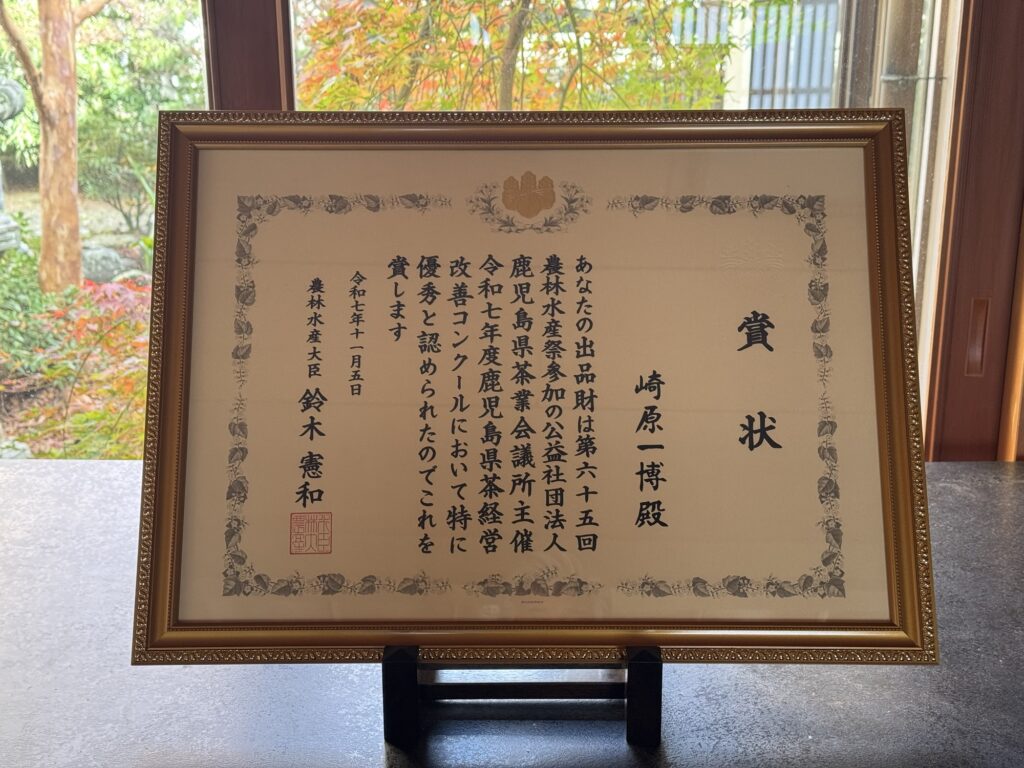 賞状
崎原一博殿
あなたの出品財は第六十五回
農林水産祭参加の公益社団法人
鹿児島県茶業会議所主催
令和七年度鹿児島県茶経営
改善コンクールにおいて特に
優秀と認められたのでこれを
賞します
令和七年十一月五日
農林水産大臣 鈴木憲和